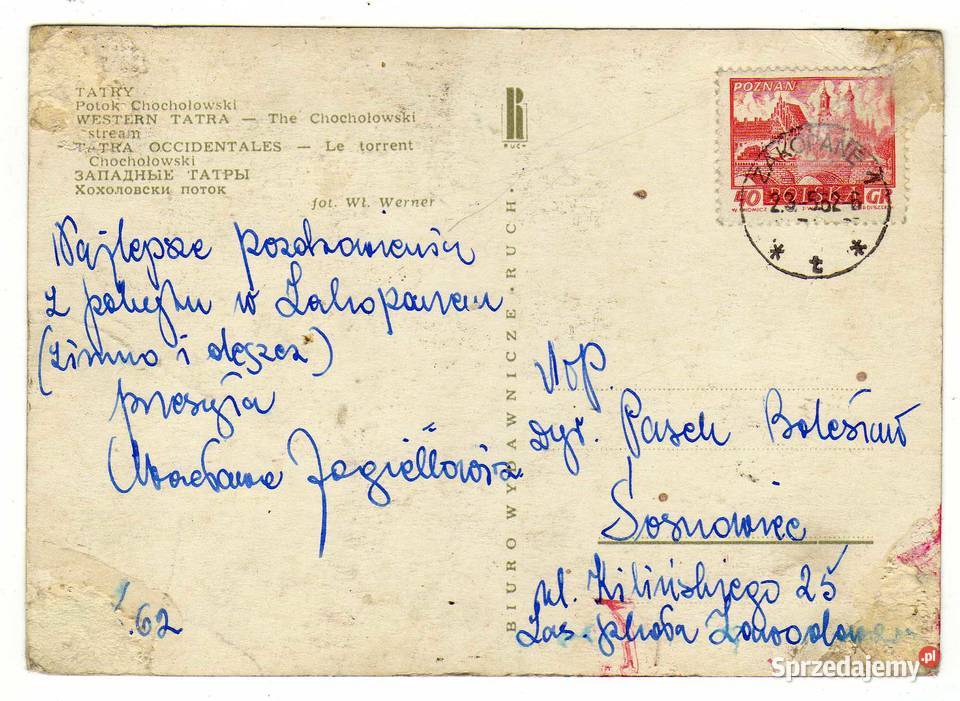 TATRY
Potok Chochołowski
WESTERN TATRA — The Chochołowski
stream
TATRA OCCIDENTALES — Le torrent
Chochołowski
ЗАПАДНЫЕ ТАТРЫ
Хохоловски поток
fot. Wł. Werner
Najlepsze pozdrowienia
z pobytu w Zakopanem
(zimno i deszcz)
przesyła
Wacława Jagiełłowicz
.62
RUCH
BIURO WYDAWNICZE · RUCH ·
POZNAŃ
40 POLSKA GR
ZAKOPANE
* t *
WP.
dyr. Pasek Bolesław
Sosnowiec
ul. Kilińskiego 25
Zas. Szkoła Zawodowa
Sprzedajemy.pl